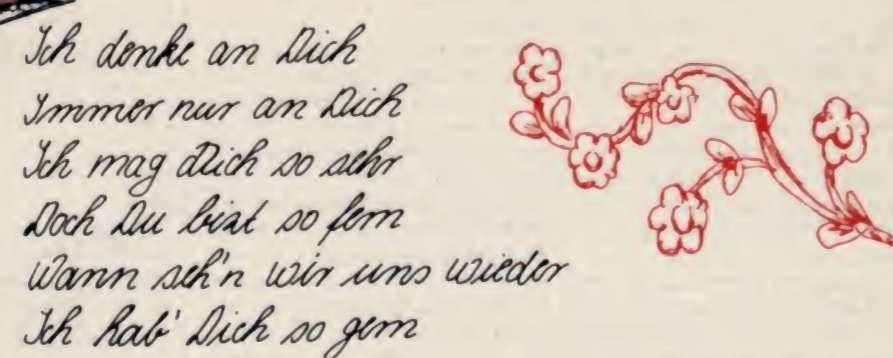 Ich denke an Dich
Immer nur an Dich
Ich mag Dich so sehr
Doch Du bist so fern
Wann seh'n wir uns wieder
Ich hab' Dich so gern